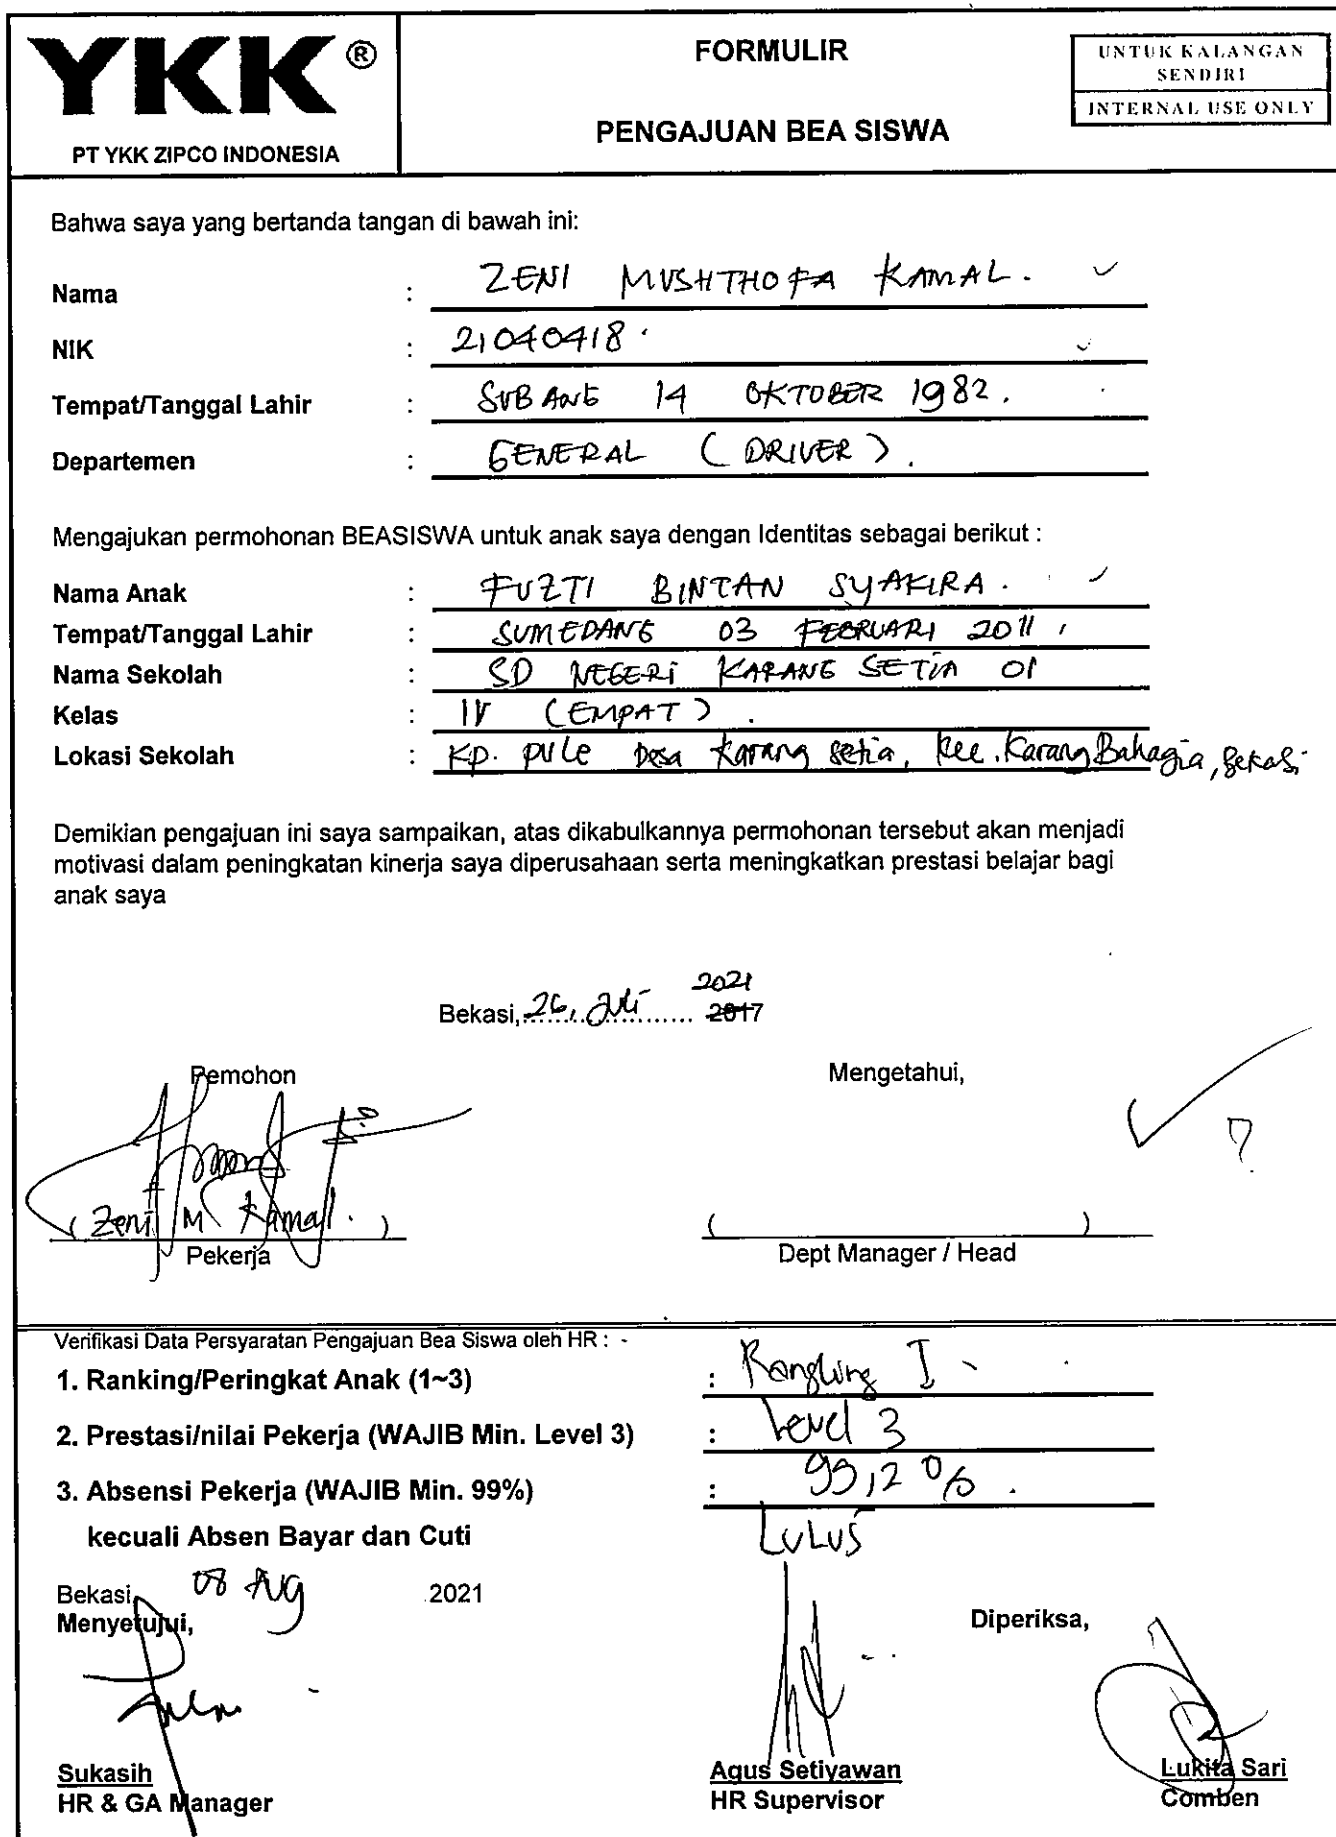 YKK®
PT YKK ZIPCO INDONESIA
FORMULIR
PENGAJUAN BEA SISWA
UNTUK KALANGAN
SENDIRI
INTERNAL USE ONLY
Bahwa saya yang bertanda tangan di bawah ini:
Nama : ZENI MUSHTHOFA KAMAL.
NIK : 21040418.
Tempat/Tanggal Lahir : SUBANG 14 OKTOBER 1982.
Departemen : GENERAL (DRIVER).
Mengajukan permohonan BEASISWA untuk anak saya dengan Identitas sebagai berikut :
Nama Anak : FUZTI BINTAN SYAKIRA.
Tempat/Tanggal Lahir : SUMEDANG 03 FEBRUARI 2011
Nama Sekolah : SD NEGERI KARANG SETIA 01
Kelas : IV (EMPAT).
Lokasi Sekolah : Kp. pule Desa Karang setia, Kec. Karang Bahagia, Bekasi
Demikian pengajuan ini saya sampaikan, atas dikabulkannya permohonan tersebut akan menjadi
motivasi dalam peningkatan kinerja saya diperusahaan serta meningkatkan prestasi belajar bagi
anak saya
2021
Bekasi, 26, Juli 2017
Pemohon
Mengetahui,
(Zeni M Kamal.)
Pekerja
( )
Dept Manager / Head
Verifikasi Data Persyaratan Pengajuan Bea Siswa oleh HR : -
1. Ranking/Peringkat Anak (1~3) : Rangking I
2. Prestasi/nilai Pekerja (WAJIB Min. Level 3) : Level 3
3. Absensi Pekerja (WAJIB Min. 99%) : 99,2 %.
kecuali Absen Bayar dan Cuti
LULUS
Bekasi, 08 Aug 2021
Menyetujui,
Diperiksa,
Sukasih
HR & GA Manager
Agus Setiyawan
HR Supervisor
Lukita Sari
Comben